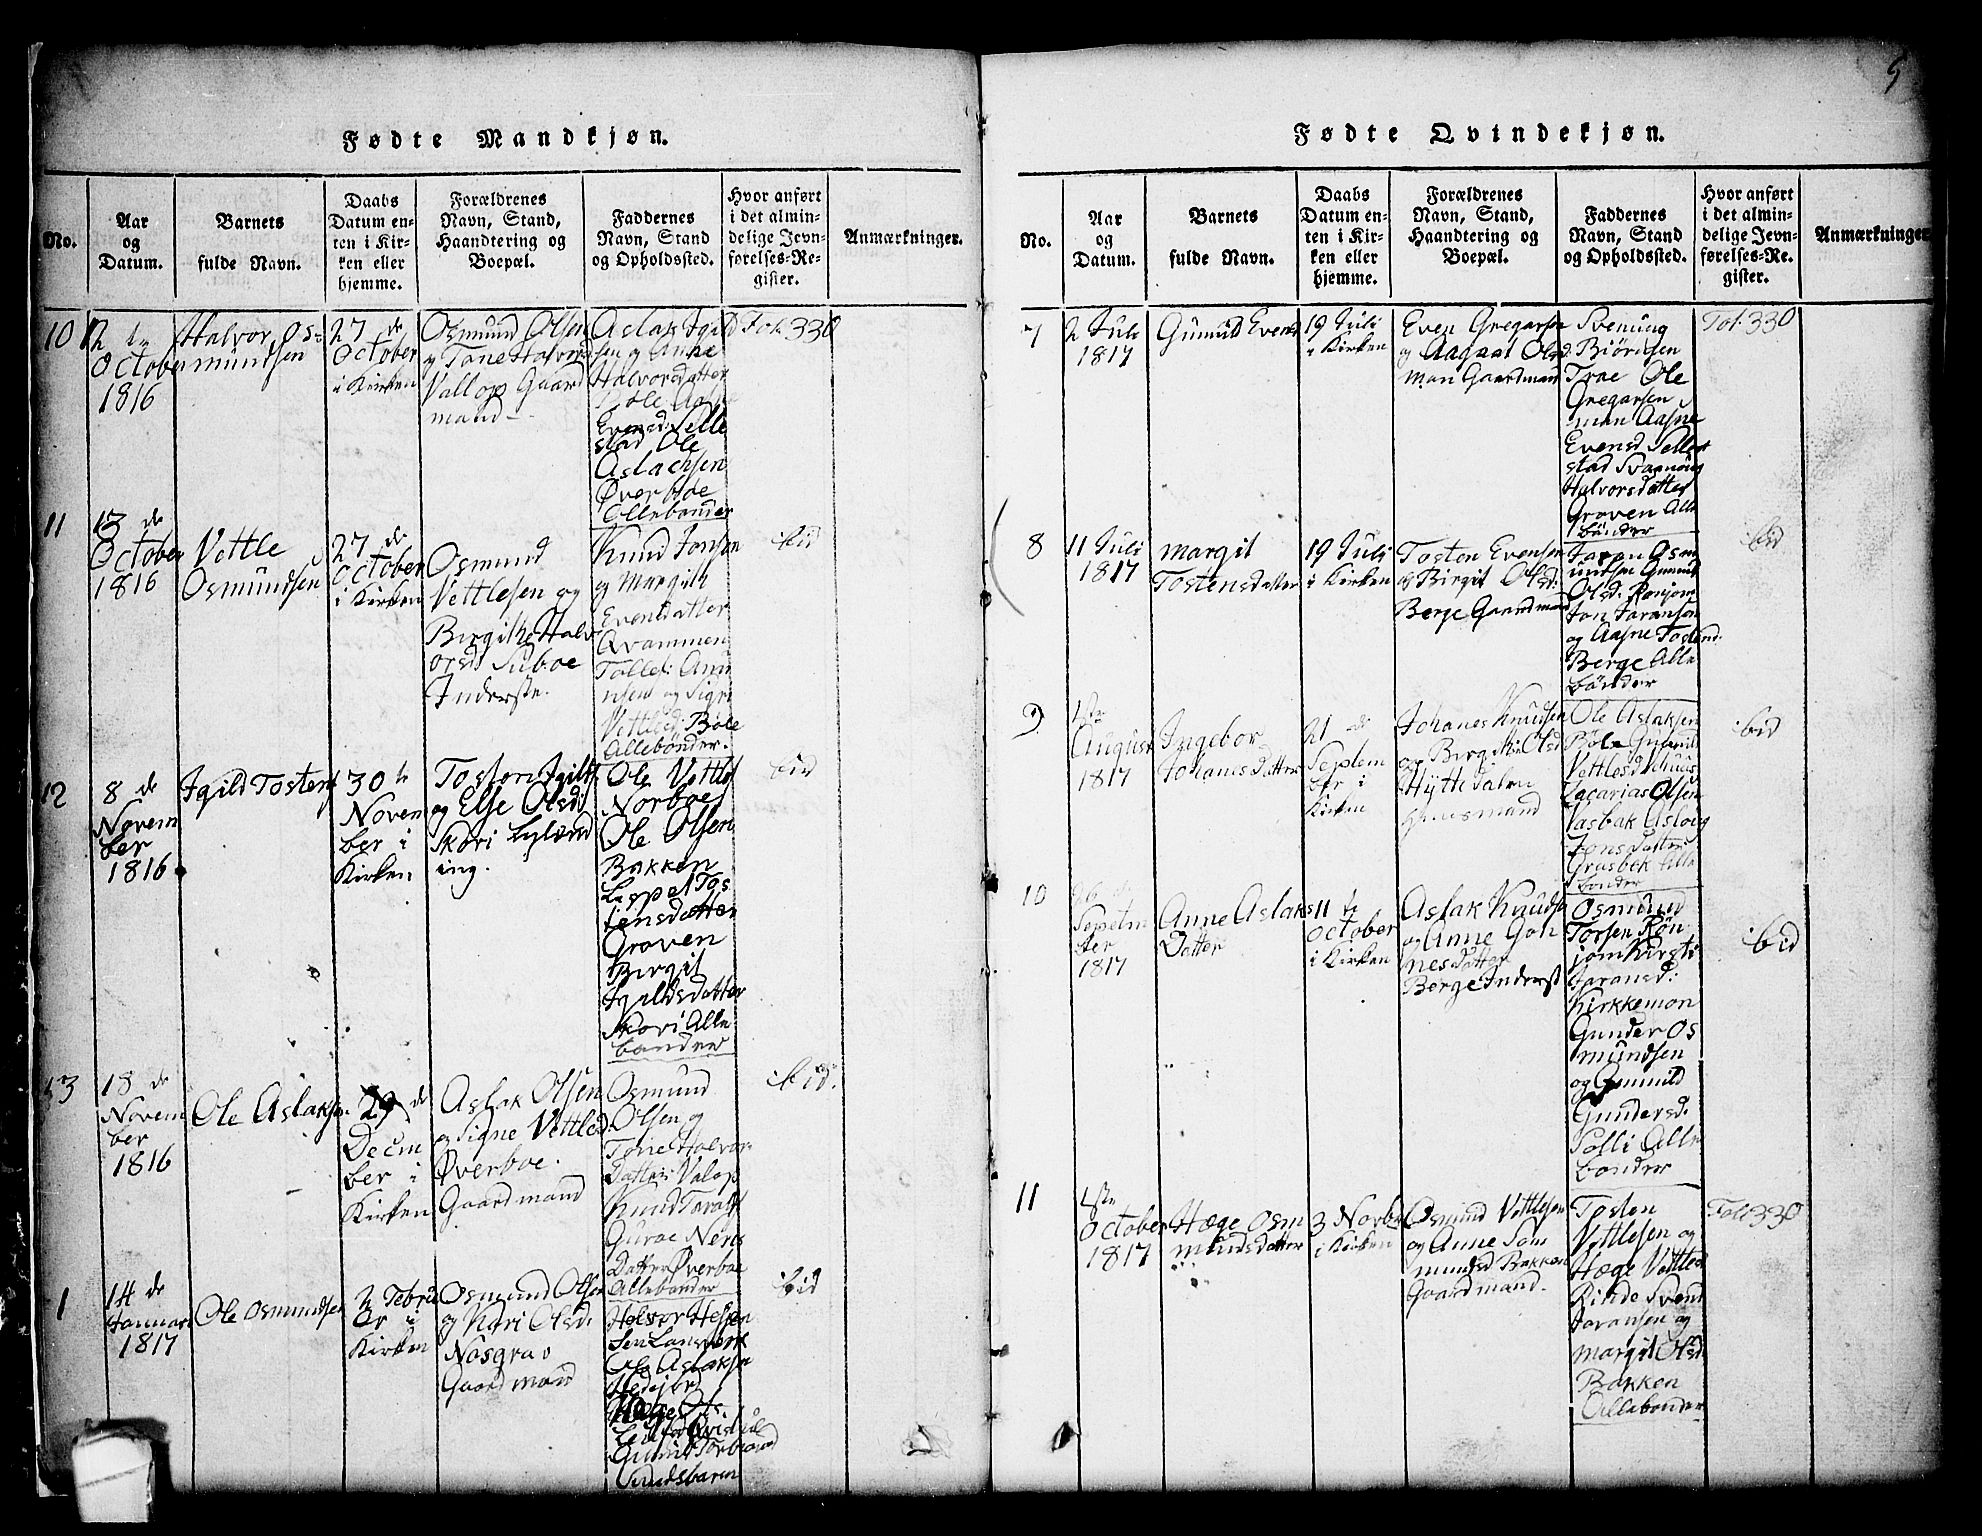 5
Fødte Mandkjøn.
No.
Aar
og
Datum.
Barnets
fulde Navn.
Daabs
Datum en-
ten i Kir-
ken eller
hjemme.
Forældrenes
Navn, Stand,
Haandtering og
Boepæl.
Faddernes
Navn, Stand
og Opholdssted.
Hvor anført
i det almin-
delige Jevn-
førelses-Re-
gister.
Anmærkninger.
10
12 de
October
1816
Halvor Os-
mundsen
27 de
October
i Kirken
Osmund Olsen
og Tone Halvord
Vallop Gaard
mand
Aslak Igild
sen og Anne
Halvorsdatter
Bøle Aasne
Evensd: Selle
stad Ole
Aslachsen
Øverboe
Allebønder
Fol. 330
11
13 de
October
1816
Vettle
Osmundsen
27 de
October
i Kirken
Osmund
Vettlesen og
Birgithe Halv
orsd. Suboe
Inderste.
Knud Jonsen
og Margith
Evensdatter
Qvammen
Tollef
nsen og Sigri
Vettlesd: Bøle
Allebønder.
ibid
12
8 de
Novem
ber
1816
Igild Tostens
30 te
Novem
ber i
Kirken
Tosten Igilds
og Else Olsd:
Skori
ing.
Ole Vettles
Norboe
Ole Olsen
Bakken
Tos
tensdatter
Groven
Birgit
Igildsdatter
Skori Alle
bønder
ibid
13
18 de
Novem
ber
1816
Ole Aslaksen
29 de
Decem
ber i
Kirken
Aslak Olsen
og Signe Vettled:
Øverboe.
Gaardmand
Osmund
Olsen og
Tone Halvor
Datter: Valop
Knud Taralds
Guroe Nens
Datter Øverboe
Allebønder
ibid.
1
14 de
Januari
1817
Ole Osmundsen
2 Febru
ar i
Kirken
Osmund Olsen
og Kari Olsd:
Nosgra
Gaardmand
Halvor
sen
Ole Aslaksen
Hedejord
Gunild Torbiørnd
ibid
Fødte Qvindekjøn.
No.
Aar
og
Datum.
Barnets
fulde Navn.
Daabs
Datum en-
ten i Kir-
ken eller
hjemme.
Forældrenes
Navn, Stand,
Haandtering og
Boepæl.
Faddernes
Navn, Stand
og Opholdssted.
Hvor anført
i det almin-
delige Jevn-
førelses-Re-
gister.
Anmærkninger
7
2 Juli
1817
Gunild Evens
19 Juli
i Kirken
Even Gregarsen
og Aagaat Olsd.
Mon Gaardmand
Svenung
Biørnsen
Troe Ole
Gregarsen
mon Aasne
Evensd Selle
stad Svanaug
Halvorsdatter
Groven Alle
bønder
Fol. 330
8
11 Juli
1817
Margit
Tostensdatter
19 Juli
i Kirken
Tosten Evensen
og Birgit Olsd:
Berge Gaardmand
Jaran Osm
undsen Gunild
Olsd: Rønjom
Jon Jaransen
og Aasne Tostend:
Berge Alle
bønder
ibid
9
1ste
August
1817
Ingebor
Johanesdatter
21 de
Septem
ber i
Kirken
Johanes Knudsen
og Birgithe Olsd
Hyttedalen
Huusmand
Ole Aslaksen
Bøle Gunild
Vettlesd
Zacarias Olsen
Vasbak Aslaug
Jonsdatter
Grasbek Alle
bønder
ibid
10
Septem
ber
1817
Anne Aslaks
Datter
11 te
October
i Kirken
Aslak Knuds
og Anne Joh
nesdatter
Berge Inderst
Osmund
Torsen Røn
jom Kirsti
Jaransd:
Kirkkemon
Gunder Os
mundsen
og Gunnild
Gundersd.
Folli Alle
bønder
ibid
11
1ste
October
1817
Hæge Osm
mundsdatter
3 Novbr
i Kirken
Osmund Vettlesen
og Anne Tom
mundsd Bakken
Gaardmand.
Tosten
Vettlesen og
Hæge Vettled
Rinde Svend
Jaransen og
Margit Olsd
Bakken
Allebønder
Fol. 330